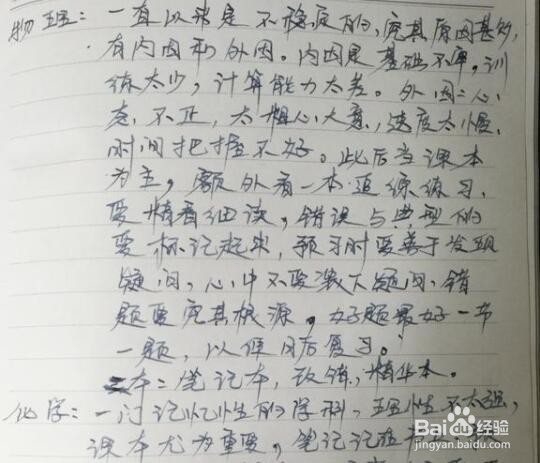 物理：一直以来是不稳定的，究其原因甚多，
有内因和外因。内因是基础不牢，训
练太少，计算能力太差。外因：心
态不正，太粗心大意，速度太慢，
时间把握不好。此后当课本
为主，额外看一本追练练习，
要精看细读，错误与典型的
要标记起来，预习时要善于发现
疑问，心中不要装下题问，错
题要究其根源。好题最好一节
一题，以便日后复习。
本：笔记本，改错，精华本。
化学：一门记忆性的学科，理性不太强，
课本尤为重要，笔记记在
Baidu 经验
jingyan.baidu.com